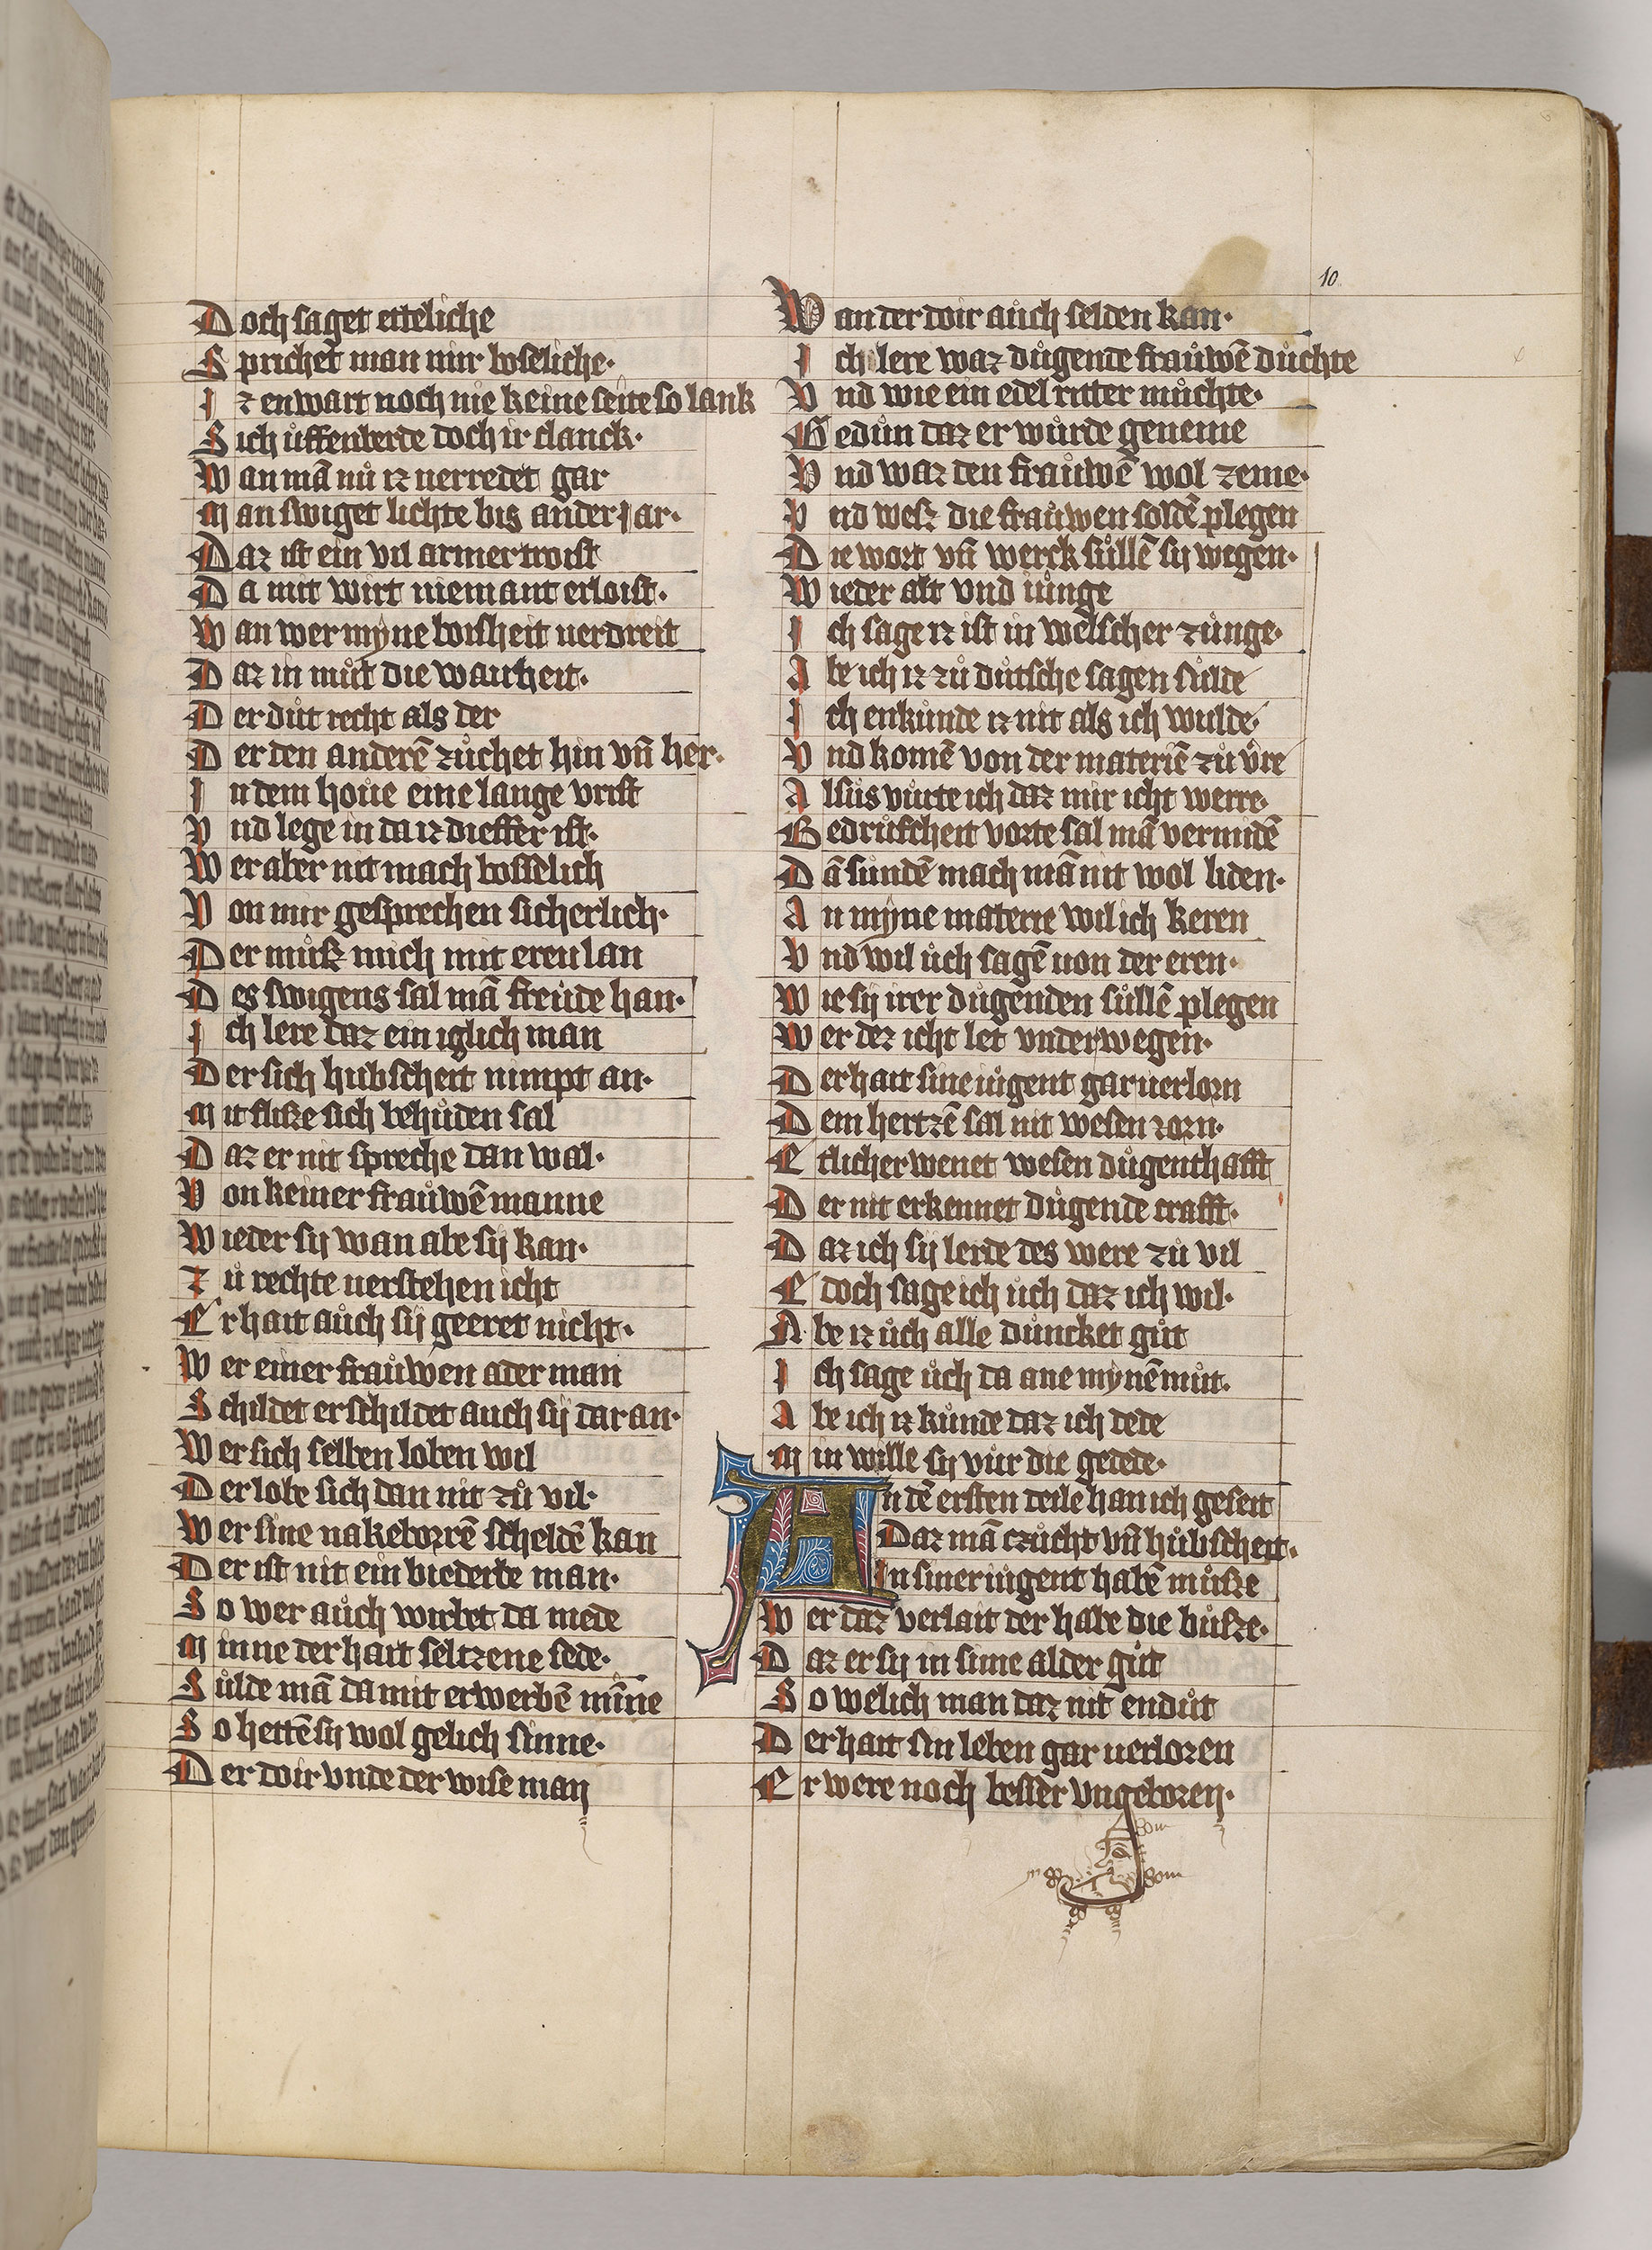 10
Doch saget etteliche
Sprichet man mir boseliche·
Iz enwart noch nie keine seite so lank
Sich uͦffenberde doch ir clanck·
Wan mā nuͦ iz uerredet gar
Man swiget lichte bis ander jar·
Daz ist ein vil armer troist
Da mit wirt niemant erloist·
Wan wer myne boisheit uerdreit
Daz in muͦt die warheit·
Der duͦt recht als der
Der den anderē zuͦchet hin vn̄ her·
In dem houe eine lange vrist
Vnd lege in da iz dieffer ist·
Wer aber nit mach bosselich
Von mir gesprechen sicherlich·
Der muͦsz mich mit eren lan
Des swigens sal mā freude han·
Ich lere daz ein iglich man
Der sich hubscheit nimpt an·
Mit flisze sich behuͦden sal
Daz er nit spreche dan wal·
Von keiner frauͦwē manne
Wieder sij wan abe sij kan·
Zuͦ rechte uerstehen icht
Er hait auͦch sij geeret nicht·
Wer einer frauͦwen ader man
Schildet er schildet auch sij dar an·
Wer sich selben loben wil
Der lobe sich dan nit zuͦ vil·
Wer sine nakeborrē scheldē kan
Der ist nit ein biederbe man·
So wer auͦch wirbet da mede
Minne der hait seltzene sede·
Suͦlde mā da mit erwerbē mīne
So hettē sij wol gelich sinne·
Der doir vnde der wise man
Wan der doir auͦch selden kan·
Ich lere waz duͦgende frauͦwē duͦchte
Vnd wie ein edel ritter muͦchte·
Geduͦn daz er wuͦrde geneme
Vnd waz den frauͦwē wol zeme·
Vnd wesz die frauͦwen soldē plegen
Die wort vn̄ werck suͦllē sij wegen·
Wieder alt vnd iuͦnge
Ich sage iz ist in welscher zuͦnge·
Abe ich iz zuͦ duͦtsche sagen suͦlde
Ich enkuͦnde iz nit als ich wulde·
Vnd komē von der materiē zuͦ vͦre
Alsuͦs vuͦrte ich daz mir icht werre·
Gedruͦfcheit vorte sal mā vermidē
Dā suͦndē mach mā nit wol liden·
An myne materie wil ich keren
Vnd wil uͦch sagē uon der eren·
Wie sij irer duͦgenden suͦllē plegen
Wer dez icht let vnder wegen·
Der hait sine iuͦgent gar uerlorn
Dem hertzē sal nit wesen zorn·
Etlicher wenet wesen duͦgenthafft
Der nit erkennet duͦgende crafft·
Daz ich sij lerde des were zuͦ vil
Edoch sage ich uͦch daz ich wil·
Abe iz uͦch alle duͦncket guͦt
Ich sage uͦch da ane mynē muͦt·
Abe ich iz kuͦnde daz ich dede
Min wille sij vuͦr die gedede·
An dē ersten deile han ich geseit
Daz mā czuͦcht vn̄ huͦbscheit·
In siner iuͦgent habē muͦsze
Wer daz verlait der habe die buͦsze·
Daz er sij in sime alder guͦt
So welich man daz nit enduͦt
Der hait sin leben gar uerloren
Er were noch besser vngeboren·